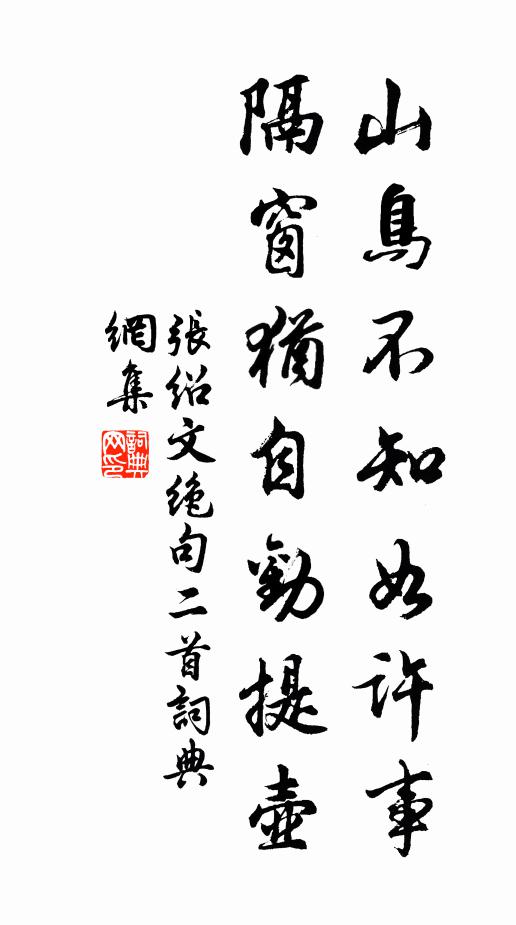 山鳥不知如許事
隔窗猶自勸提壺
張紹文絶句二首詞典
網集
詞典網印